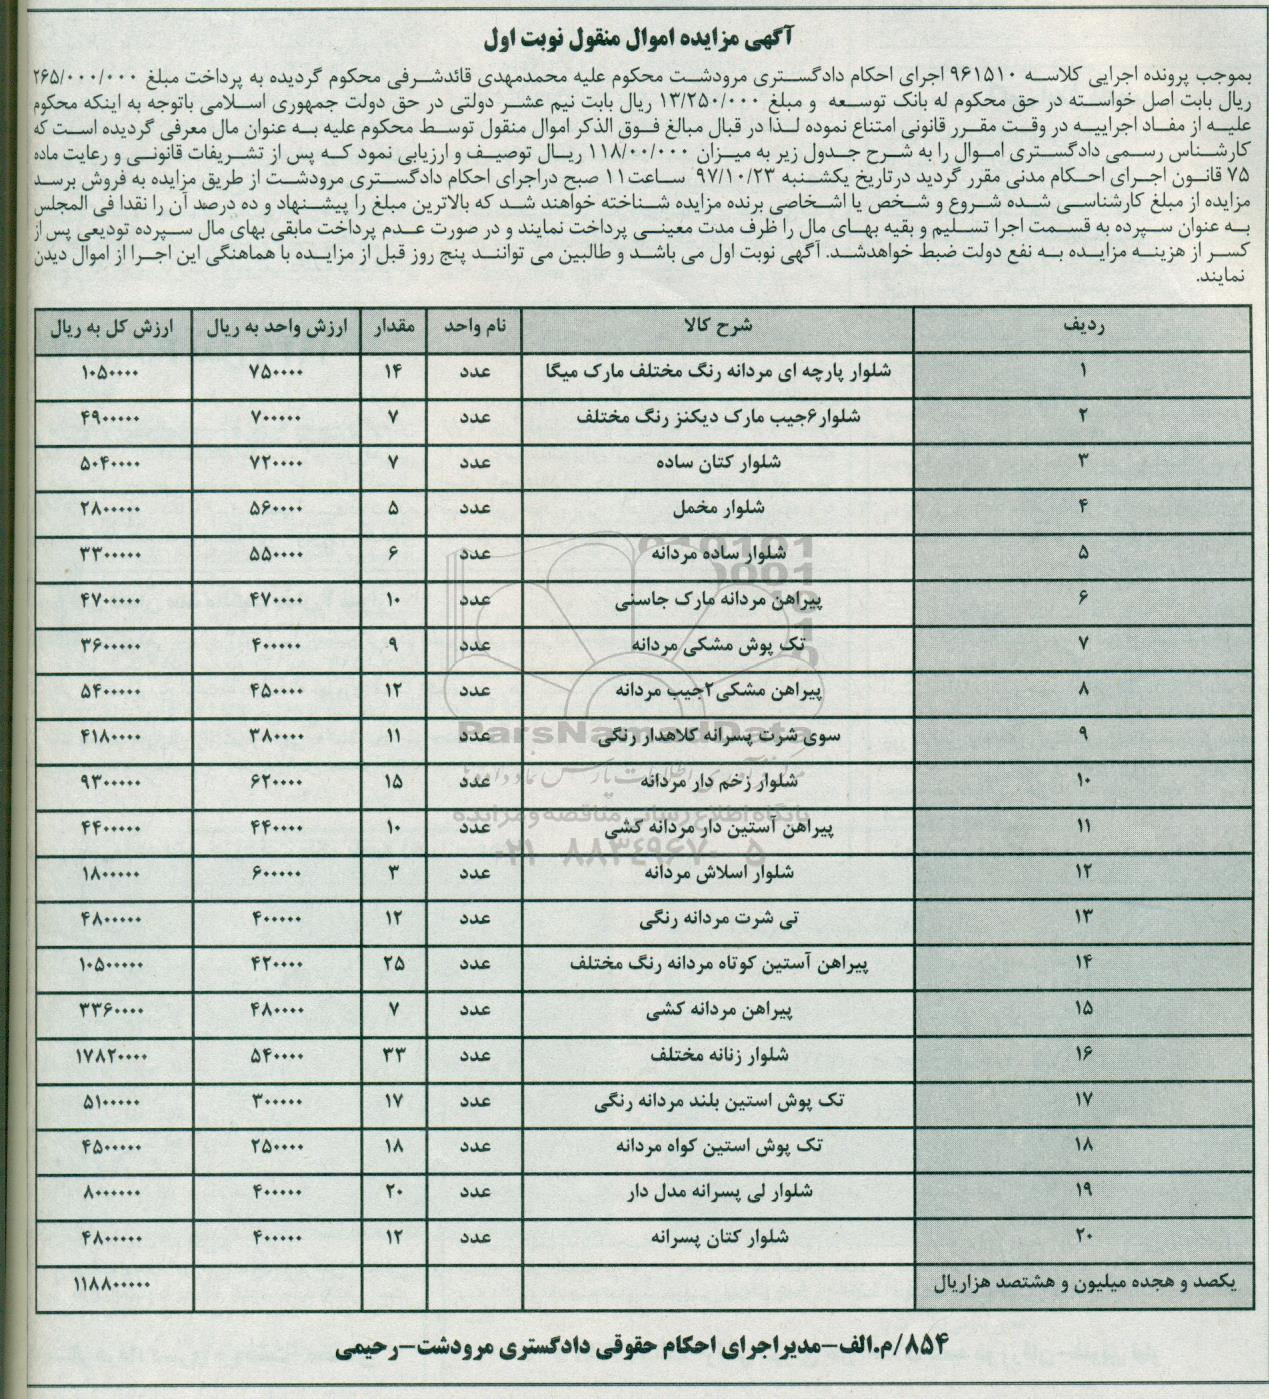 آگهی مزایده اموال منقول نوبت اول
بموجب پرونده اجرایی کلاسه ۹۶۱۵۱۰ اجرای احکام دادگستری مرودشت محکوم علیه محمدمهدی قائدشرفی محکوم گردیده به پرداخت مبلغ ۲۶۵/۰۰۰/۰۰۰
ریال بابت اصل خواسته در حق محکوم له بانک توسعه و مبلغ ۱۳/۲۵۰/۰۰۰ ریال بابت نیم عشر دولتی در حق دولت جمهوری اسلامی باتوجه به اینکه محکوم
علیه از مفاد اجراییه در وقت مقرر قانونی امتناع نموده لذا در قبال مبالغ فوق الذکر اموال منقول توسط محکوم علیه به عنوان مال معرفی گردیده است که
کارشناس رسمی دادگستری اموال را به شرح جدول زیر به میزان ۱۱۸/۰۰/۰۰۰ ریال توصیف و ارزیابی نمود که پس از تشریفات قانونی و رعایت ماده
۷۵ قانون اجرای احکام مدنی مقرر گردید درتاریخ یکشنبه ۹۷/۱۰/۲۳ ساعت۱۱ صبح دراجرای احکام دادگستری مرودشت از طریق مزایده به فروش برسد
مزایده از مبلغ کارشناسی شده شروع و شخص یا اشخاصی برنده مزایده شناخته خواهند شد که بالاترین مبلغ را پیشنهاد و ده درصد آن را نقدا فی المجلس
به عنوان سپرده به قسمت اجرا تسلیم و بقیه بهای مال را ظرف مدت معینی پرداخت نمایند و در صورت عدم پرداخت مابقی بهای مال سپرده تودیعی پس از
کسر از هزینه مزایده به نفع دولت ضبط خواهدشد. آگهی نوبت اول می باشد و طالبین می توانند پنج روز قبل از مزایده با هماهنگی این اجرا از اموال دیدن
نمایند.
ردیف شرح کالا نام واحد مقدار ارزش واحد به ریال ارزش کل به ریال
۱ شلوار پارچه ای مردانه رنگ مختلف مارک میگا عدد ۱۴ ۷۵۰۰۰۰ ۱۰۵۰۰۰۰
۲ شلوار۶جیب مارک دیکنز رنگ مختلف عدد ۷ ۷۰۰۰۰۰ ۴۹۰۰۰۰۰
۳ شلوار کتان ساده عدد ۷ ۷۲۰۰۰۰ ۵۰۴۰۰۰۰
۴ شلوار مخمل عدد ۵ ۵۶۰۰۰۰ ۲۸۰۰۰۰۰
۵ شلوار ساده مردانه عدد ۶ ۵۵۰۰۰۰ ۳۳۰۰۰۰۰
۶ پیراهن مردانه مارک جاستی عدد ۱۰ ۴۷۰۰۰۰ ۴۷۰۰۰۰۰
۷ تک پوش مشکی مردانه عدد ۹ ۴۰۰۰۰۰ ۳۶۰۰۰۰۰
۸ پیراهن مشکی۲جیب مردانه عدد ۱۲ ۴۵۰۰۰۰ ۵۴۰۰۰۰۰
۹ سوی شرت پسرانه کلاهدار رنگی عدد ۱۱ ۳۸۰۰۰۰ ۴۱۸۰۰۰۰
۱۰ شلوار زخم دار مردانه عدد ۱۵ ۶۲۰۰۰۰ ۹۳۰۰۰۰۰
۱۱ پیراهن آستین دار مردانه کشی عدد ۱۰ ۴۴۰۰۰۰ ۴۴۰۰۰۰۰
۱۲ شلوار اسلاش مردانه عدد ۳ ۶۰۰۰۰۰ ۱۸۰۰۰۰۰
۱۳ تی شرت مردانه رنگی عدد ۱۲ ۴۰۰۰۰۰ ۴۸۰۰۰۰۰
۱۴ پیراهن آستین کوتاه مردانه رنگ مختلف عدد ۲۵ ۴۲۰۰۰۰ ۱۰۵۰۰۰۰۰
۱۵ پیراهن مردانه کشی عدد ۷ ۴۸۰۰۰۰ ۳۳۶۰۰۰۰
۱۶ شلوار زنانه مختلف عدد ۳۳ ۵۴۰۰۰۰ ۱۷۸۲۰۰۰۰
۱۷ تک پوش استین بلند مردانه رنگی عدد ۱۷ ۳۰۰۰۰۰ ۵۱۰۰۰۰۰
۱۸ تک پوش استین کواه مردانه عدد ۱۸ ۲۵۰۰۰۰ ۴۵۰۰۰۰۰
۱۹ شلوار لی پسرانه مدل دار عدد ۲۰ ۴۰۰۰۰۰ ۸۰۰۰۰۰۰
۲۰ شلوار کتان پسرانه عدد ۱۲ ۴۰۰۰۰۰ ۴۸۰۰۰۰۰
یکصد و هجده میلیون و هشتصد هزاریال ۱۱۸۸۰۰۰۰۰
۸۵۴/م.الف-مدیراجرای احکام حقوقی دادگستری مرودشت-رحیمی
ParsNamadData
پایگاه اطلاع رسانی مناقصه و مزایده
۰۲۱-۸۸۳۴۹۶۷۰-۵